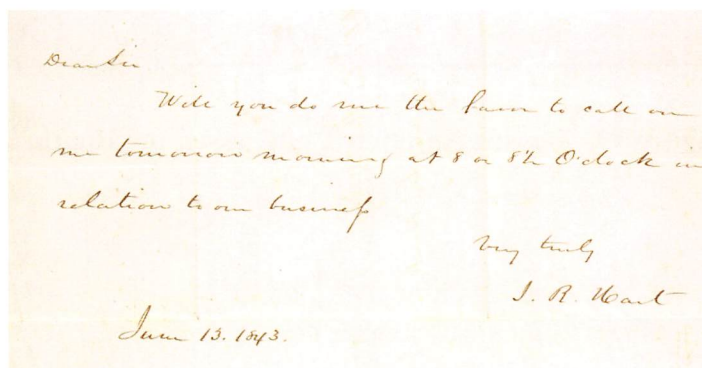 Dear Sir
Will you do me the favor to call on
me tomorrow morning at 8 or 8½ O'clock in
relation to our business
Very truly
J. R. Hart
June 13. 1843.